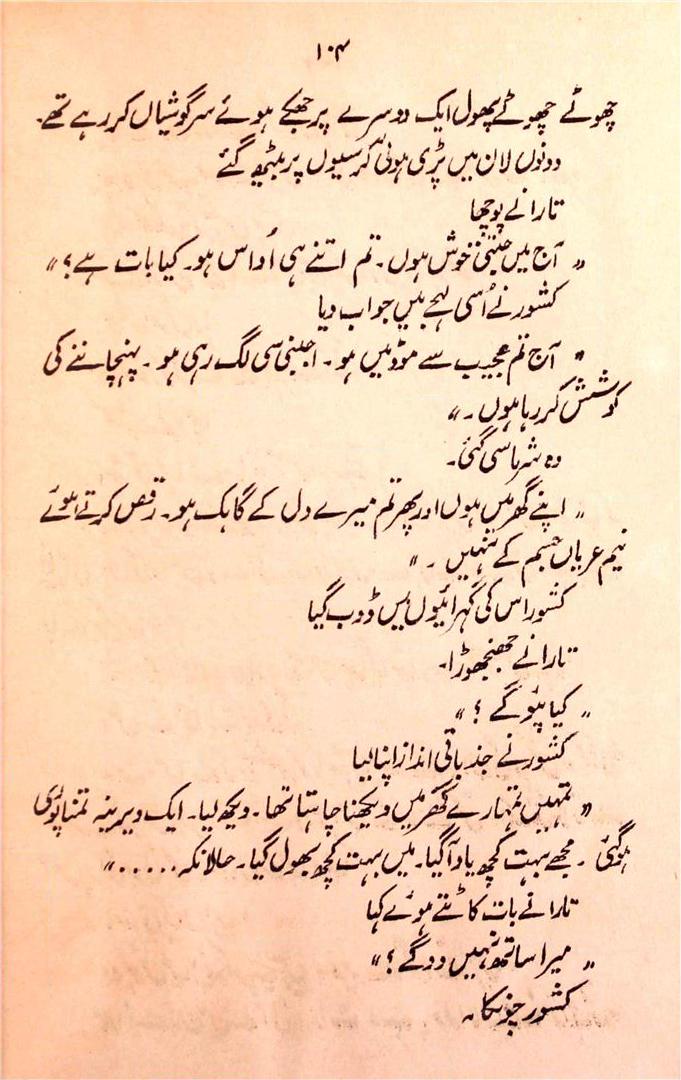 ۱۰۴
چھوٹے چھوٹے پھول ایک دوسرے پر جھکے ہوئے سرگوشیاں کر رہے تھے۔
دونوں لان میں پڑی ہوئی کرسیوں پر بیٹھ گئے
تارا نے پوچھا
"آج میں جتنی خوش ہوں۔ تم اتنے ہی اُداس ہو۔ کیا بات ہے؟"
کشور نے اُسی لہجے میں جواب دیا
"آج تم عجیب سے موڈ میں ہو۔ اجنبی سی لگ رہی ہو۔ پہنچاننے کی
کوشش کر رہا ہوں۔"
وہ شرما سی گئی۔
"اپنے گھر میں ہوں اور پھر تم میرے دل کے گاہک ہو۔ رقص کرتے ہوئے
نیم عریاں جسم کے نہیں۔"
کشور اس کی گہرائیوں میں ڈوب گیا
تارا نے جھنجھوڑا۔
"کیا پیُو گے؟"
کشور نے جذباتی انداز اپنا لیا
"تمہیں تمہارے گھر میں دیکھنا چاہتا تھا۔ دیکھ لیا۔ ایک دیرینہ تمنا پوری
ہو گئی۔ مجھے بہت کچھ یاد آگیا۔ میں بہت کچھ بھول گیا۔ حالانکہ....."
تارا نے بات کاٹتے ہوئے کہا
"میرا ساتھ نہیں دو گے؟"
کشور چونکا۔